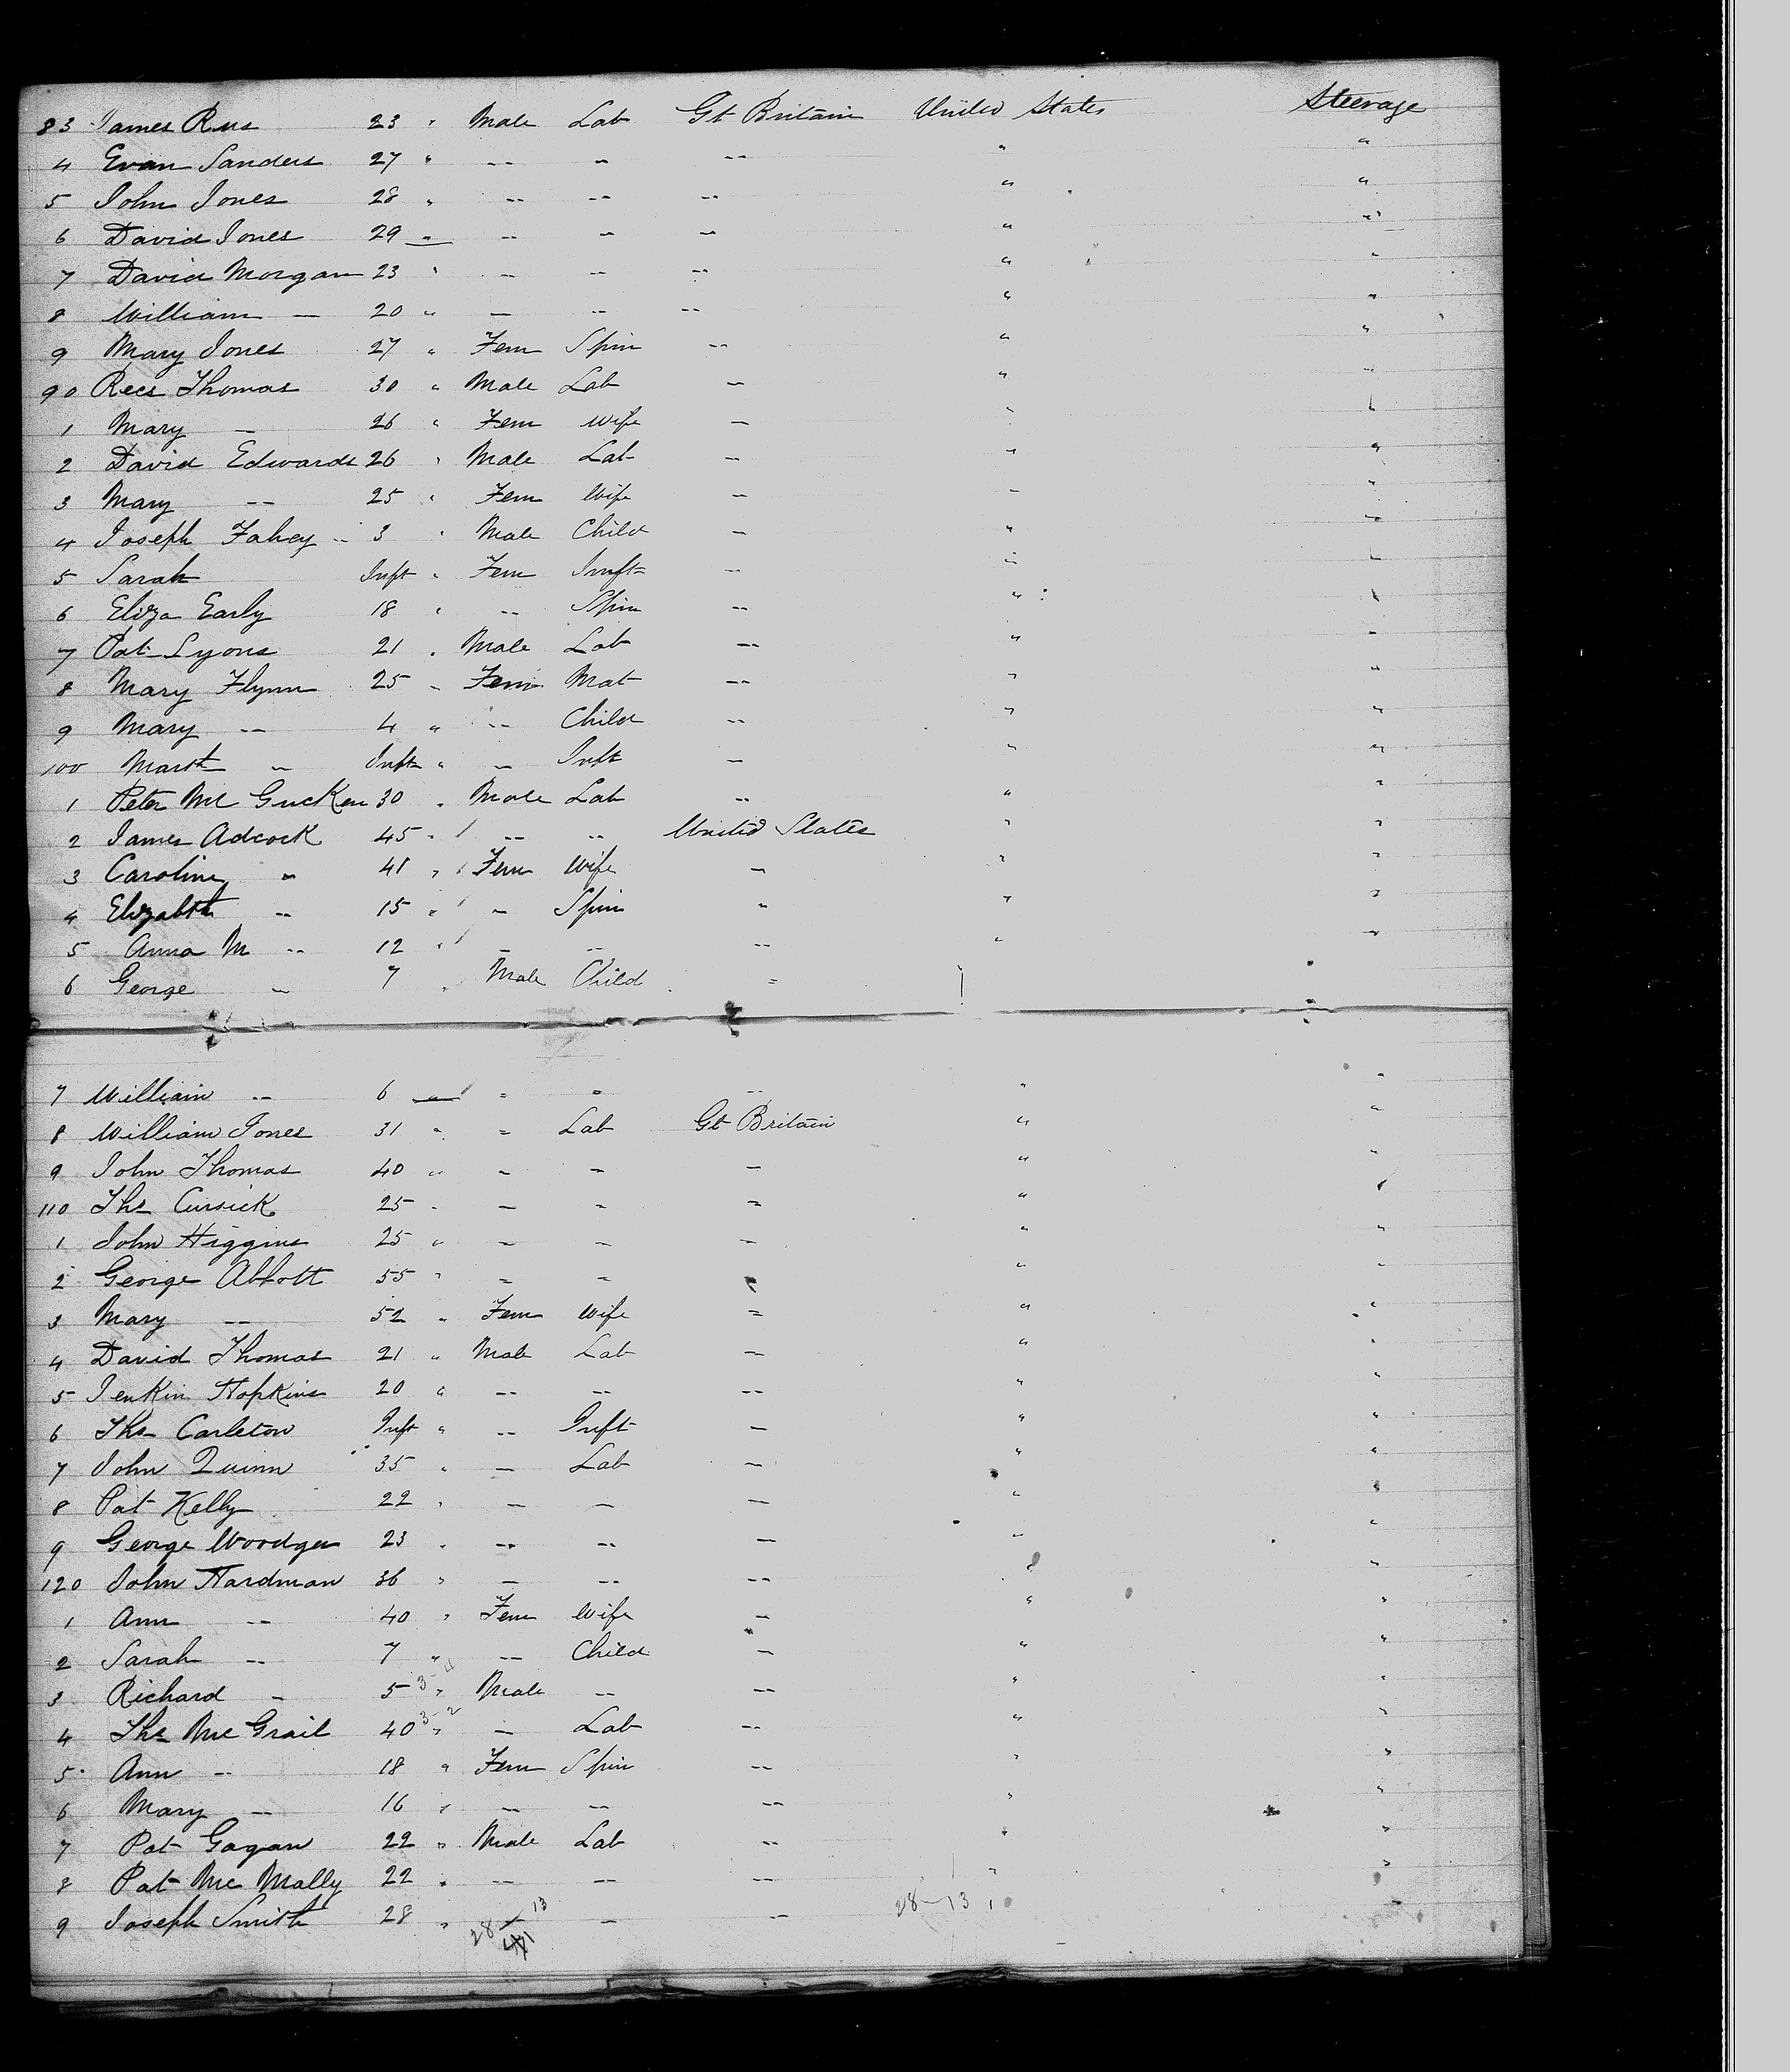 83 James Rees 23 " Male Lab Gt Britain United States Steerage
4 Evan Sanders 27 " -- " -- " "
5 John Jones 28 " -- -- -- " "
6 David Jones 29 " -- " -- " "
7 David Morgan 23 " -- -- -- " "
8 William — 20 " — -- -- " "
9 Mary Jones 27 " Fem Spin -- " "
90 Rees Thomas 30 " Male Lab — " "
1 Mary — 26 " Fem Wife — " "
2 David Edwards 26 " Male Lab — " "
3 Mary -- 25 " Fem Wife — " "
4 Joseph Fahey 3 " Male Child — " "
5 Sarah Inft " Fem Inft — " "
6 Eliza Early 18 " -- Spin -- " "
7 Pat Lyons 21 " Male Lab -- " "
8 Mary Flynn 25 " Fem Mat -- " "
9 Mary -- 4 " -- Child -- " "
100 — Inft " — Inft — " "
1 Peter Mc Gucken 30 " Male Lab -- " "
2 James Adcock 45 " -- -- United States " "
3 Caroline " 41 " Fem Wife — " "
4 Elizabth -- 15 " — Spin " " "
5 Anna M -- 12 " — -- -- " "
6 George — 7 " Male Child =
7 William -- 6 — = = -- " "
8 William Jones 31 " = Lab Gt Britain " "
9 John Thomas 40 " — — — " "
110 Ths Cusick 25 " — = = " "
1 John Higgins 25 " — — — " "
2 George Abbott 55 " = = " "
3 Mary -- 52 " Fem Wife = " "
4 David Thomas 21 " Male Lab — " "
5 Jenkin Hopkins 20 " -- -- -- " "
6 Ths Carleton Inft " -- Inft — " "
7 John Quinn 35 " — Lab — " "
8 Pat Kelly 22 " — — — " "
9 George Woodger 23 " -- -- — " "
120 John Hardman 36 " — -- -- " "
1 Ann -- 40 " Fem Wife — " "
2 Sarah -- 7 " -- Child — " "
3 Richard — 5 3-4 " Male -- -- " "
4 Ths Mc Grail 40 3-2 " — Lab -- " "
5 Ann -- 18 " Fem Spin -- " "
6 Mary — 16 " — -- -- " "
7 Pat Gagan 22 " Male Lab -- " "
8 Pat Mc Mally 22 " -- -- -- " "
9 Joseph Smith 28 " — — -- 28-13
28 13
41